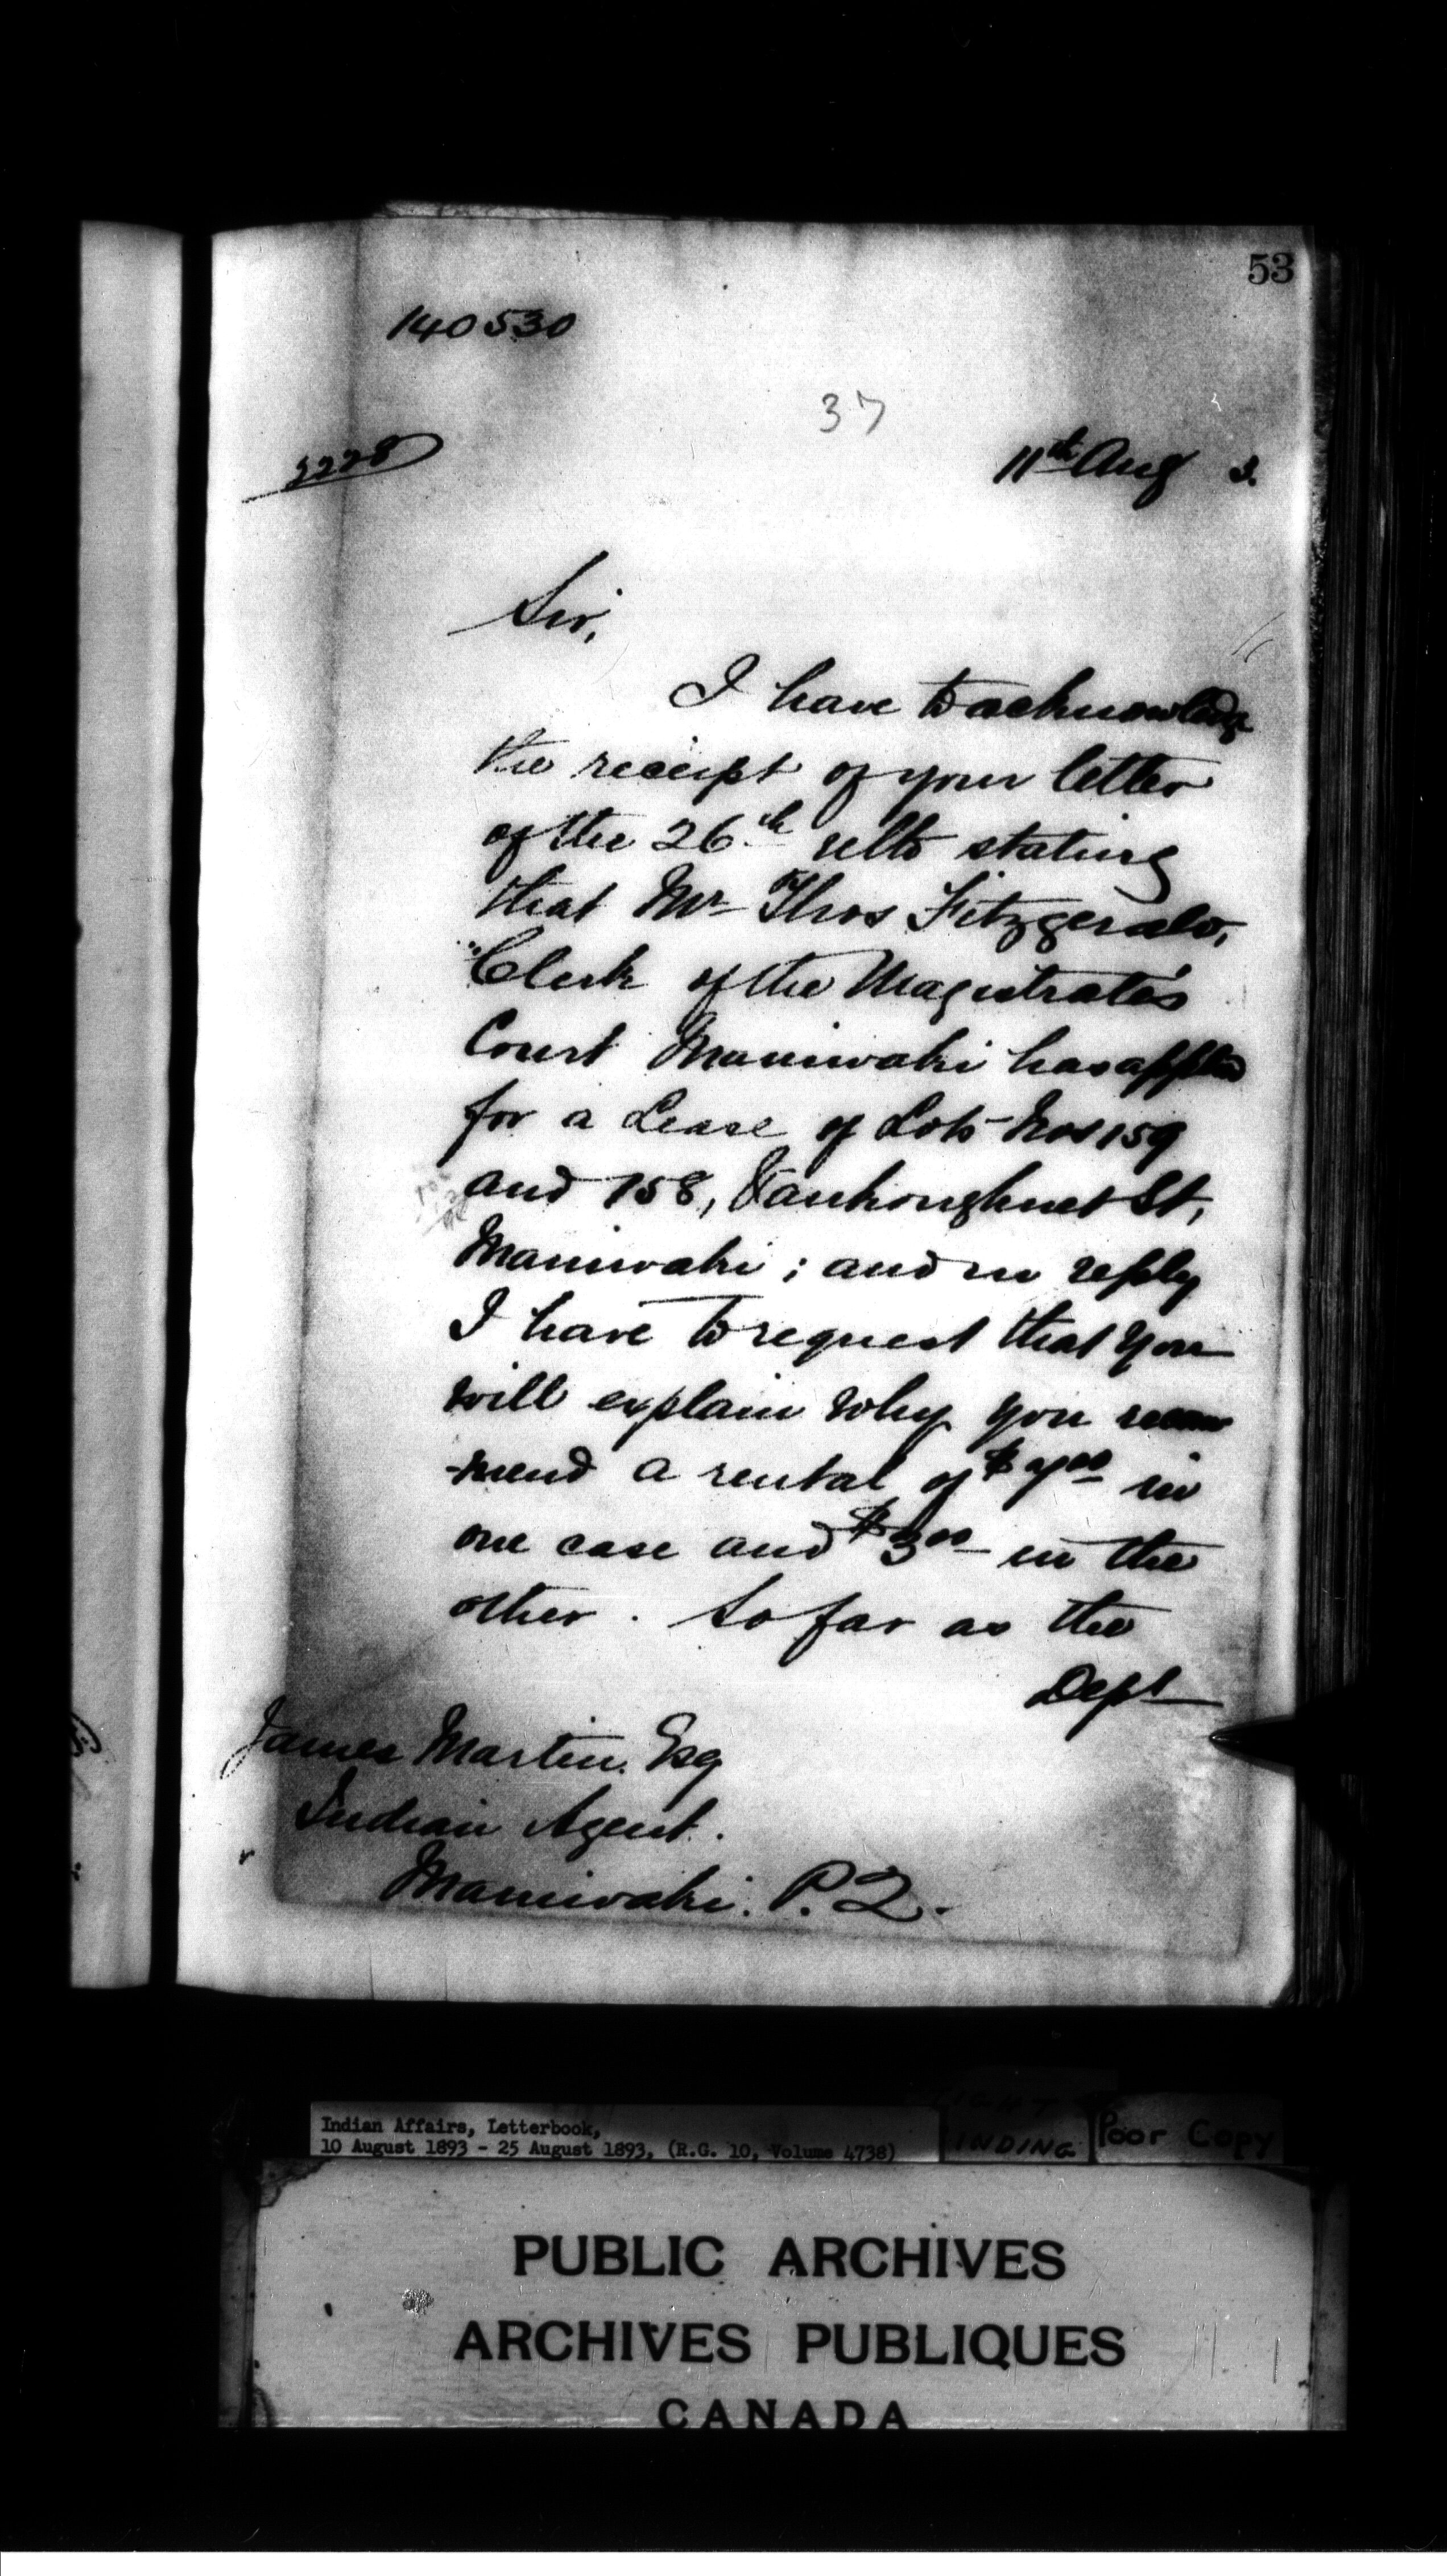 53
140530
37
3228
11th Aug 3.
Sir,
I have to acknowledge
the receipt of your letter
of the 26th ulto stating
that Mr Thos Fitzgerald,
Clerk of the Magistrate's
Court Maniwaki has applied
for a Lease of Lots Nos 159
and 158, Vankoughnet St,
Maniwaki; and in reply
I have to request that you
will explain why you recom
-mend a rental of in
one case and $3.00 in the
other. So far as the
Dept
James Martin. Esq
Indian Agent.
Maniwaki. P.Q.
Indian Affairs, Letterbook,
10 August 1893 - 25 August 1893, (R.G. 10, Volume 4738)
BINDING
Poor Copy
PUBLIC ARCHIVES
ARCHIVES PUBLIQUES
CANADA